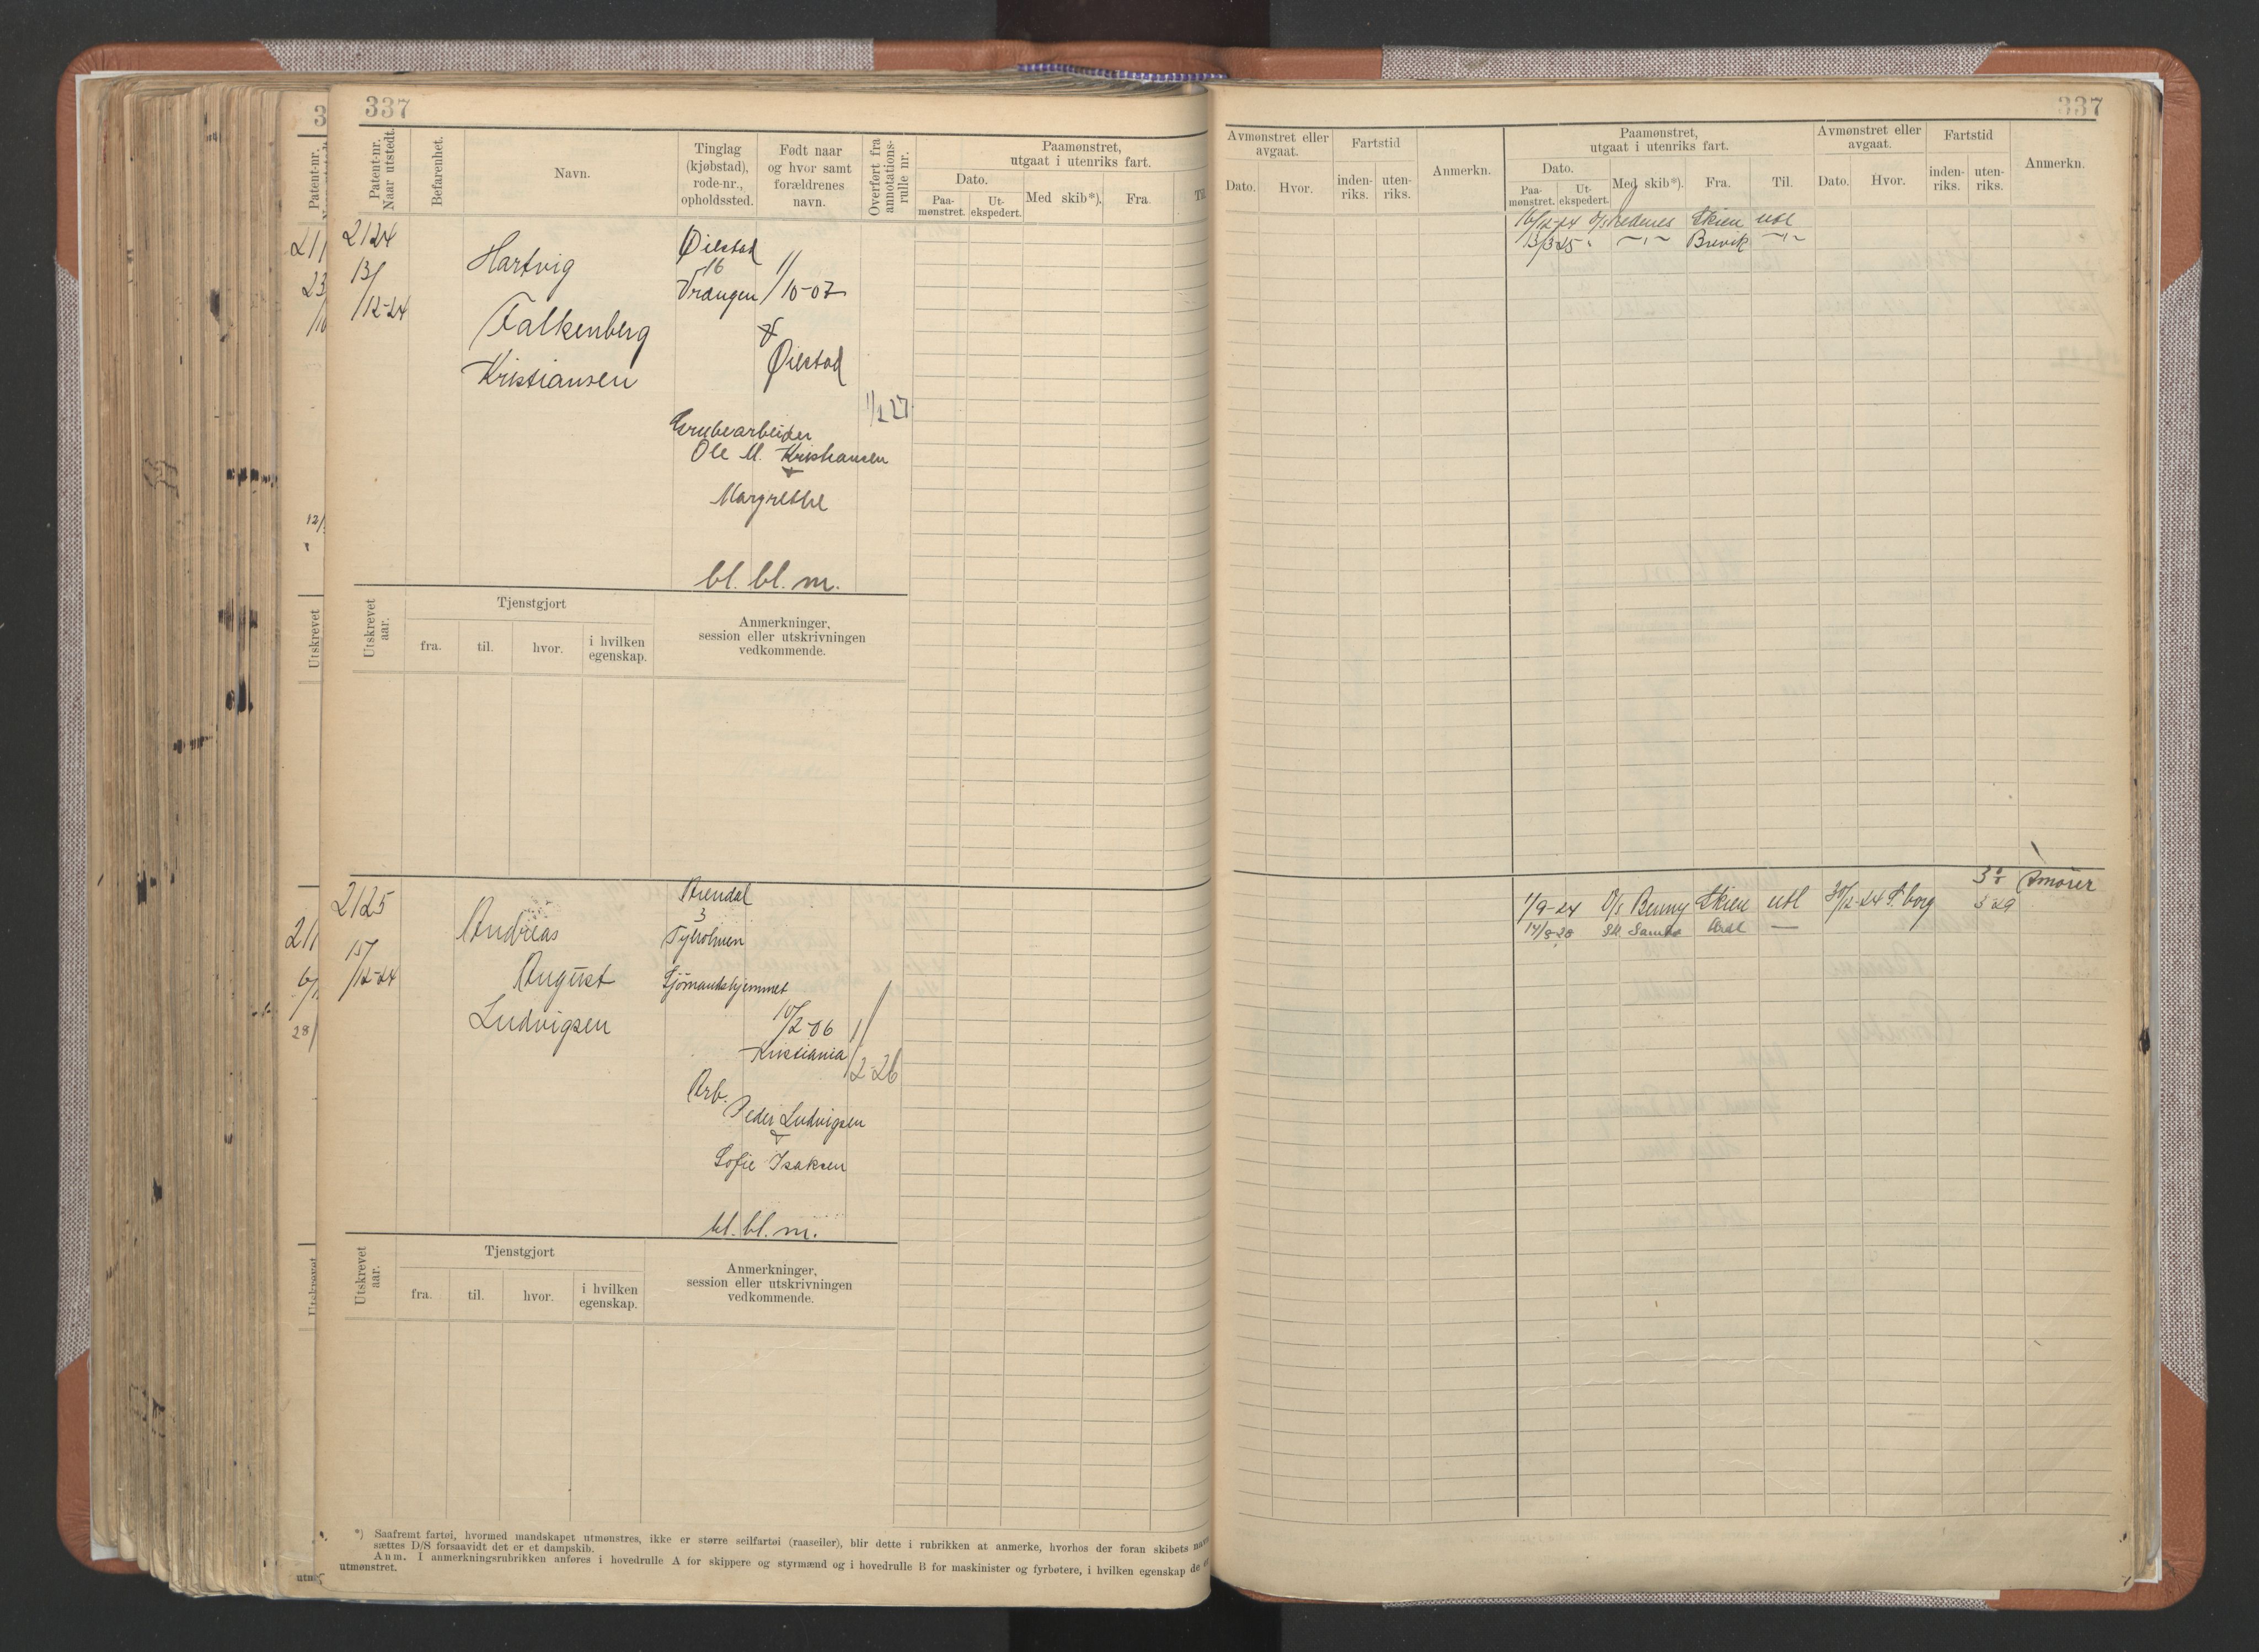 337
Patent-nr.
Naar utstedt.
Befarenhet.
Navn.
Tinglag
(kjøbstad),
rode-nr.,
opholdssted.
Født naar
og hvor samt
forældrenes
navn.
Overført fra
annotations-
rulle nr.
Paamønstret,
utgaat i utenriks fart.
Dato.
Paa-
mønstret.
Ut-
ekspedert.
Med skib*).
Fra.
2124
13/
/12-24
Hartvig
Falkenberg
Kristiansen
Øiestad
16
Vrængen
1/
/10-07
Øiestad
1/1 27
Grubearbeider
Ole M. Kristiansen
Margrethe
bl. bl. m.
Utskrevet
aar.
Tjenstgjort
fra.
til.
hvor.
i hvilken
egenskap.
Anmerkninger,
session eller utskrivningen
vedkommende.
2125
15/
/12-24
Andreas
August
Ludvigsen
Arendal
3
Tyholmen
Sjömandshjemmet
10/
/2-06
Kristiania
1/
/2-26
Arb.
Peder Ludvigsen
Sofie Isaksen
bl. bl. m.
Utskrevet
aar.
Tjenstgjort
fra.
til.
hvor.
i hvilken
egenskap.
Anmerkninger,
session eller utskrivningen
vedkommende.
*) Saafremt fartøi, hvormed mandskapet utmønstres, ikke er større seilfartøi (raaseiler), blir dette i rubrikken at anmerke, hvorhos der foran skibets navn
sættes D/S forsaavidt det er et dampskib.
Anm. I anmerkningsrubrikken anføres i hovedrulle A for skippere og styrmænd og i hovedrulle B for maskinister og fyrbøtere, i hvilken egenskap de er
utmønstret.
337
Avmønstret eller
avgaat.
Dato.
Hvor.
Fartstid
inden-
riks.
uten-
riks.
Anmerkn.
Paamønstret,
utgaat i utenriks fart.
Dato.
Paa-
mønstret.
Ut-
ekspedert.
Med skib*).
Fra.
Til.
Avmønstret eller
avgaat.
Dato.
Hvor.
Fartstid
inden-
riks.
uten-
riks.
Anmerkn.
16/12-24 D/S Nedenes Skien utl
13/3-25 " —"— Brevik —"—
1/9-24 D/S Benny Skien utl 30/12-24 S.borg
3 29
14/8-28 Sk. Samba Ardl —